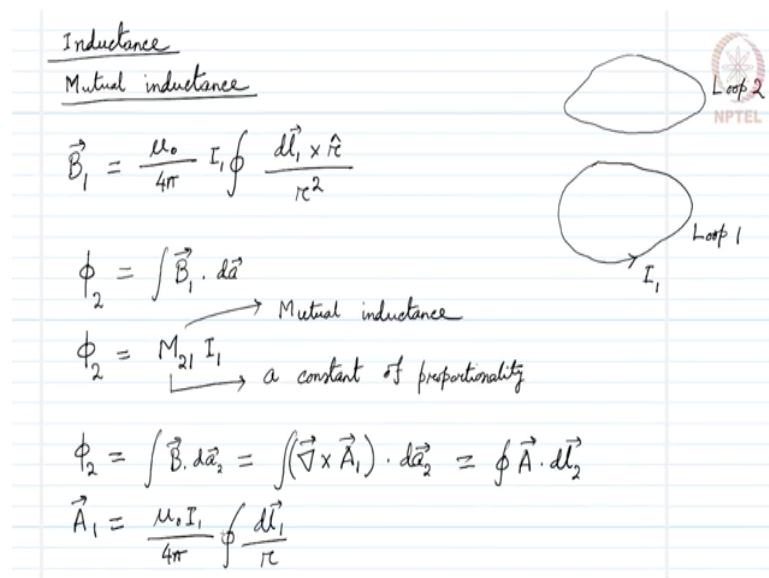 Inductance
Mutual inductance
Loop 2
NPTEL
B⃗₁ = μ₀/4π I₁ ∮ dl⃗₁ × r̂ / r²
Loop 1
I₁
ϕ₂ = ∫ B⃗₁ . da⃗
Mutual inductance
ϕ₂ = M₂₁ I₁
a constant of proportionality
ϕ₂ = ∫ B⃗ . da⃗₂ = ∫(∇⃗ × A⃗₁) . da⃗₂ = ∮ A⃗ . dl⃗₂
A⃗₁ = μ₀ I₁/4π ∮ dl⃗₁/r